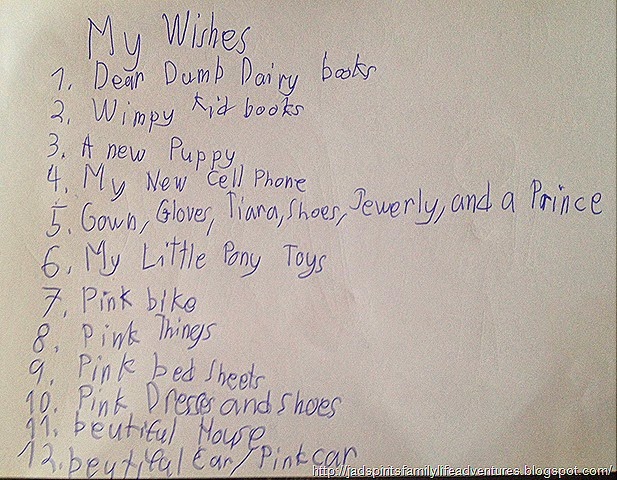 My Wishes
1. Dear Dumb Dairy books
2. Wimpy kid books
3. A new Puppy
4. My New Cell Phone
5. Gown, Gloves, Tiara, Shoes, Jewerly, and a Prince
6. My Little Pony Toys
7. Pink bike
8. Pink Things
9. Pink bed sheets
10. Pink Dresses and shoes
11. beutiful House
12. beutiful car/Pink car
http://jadspiritsfamilylifeadventures.blogspot.com/